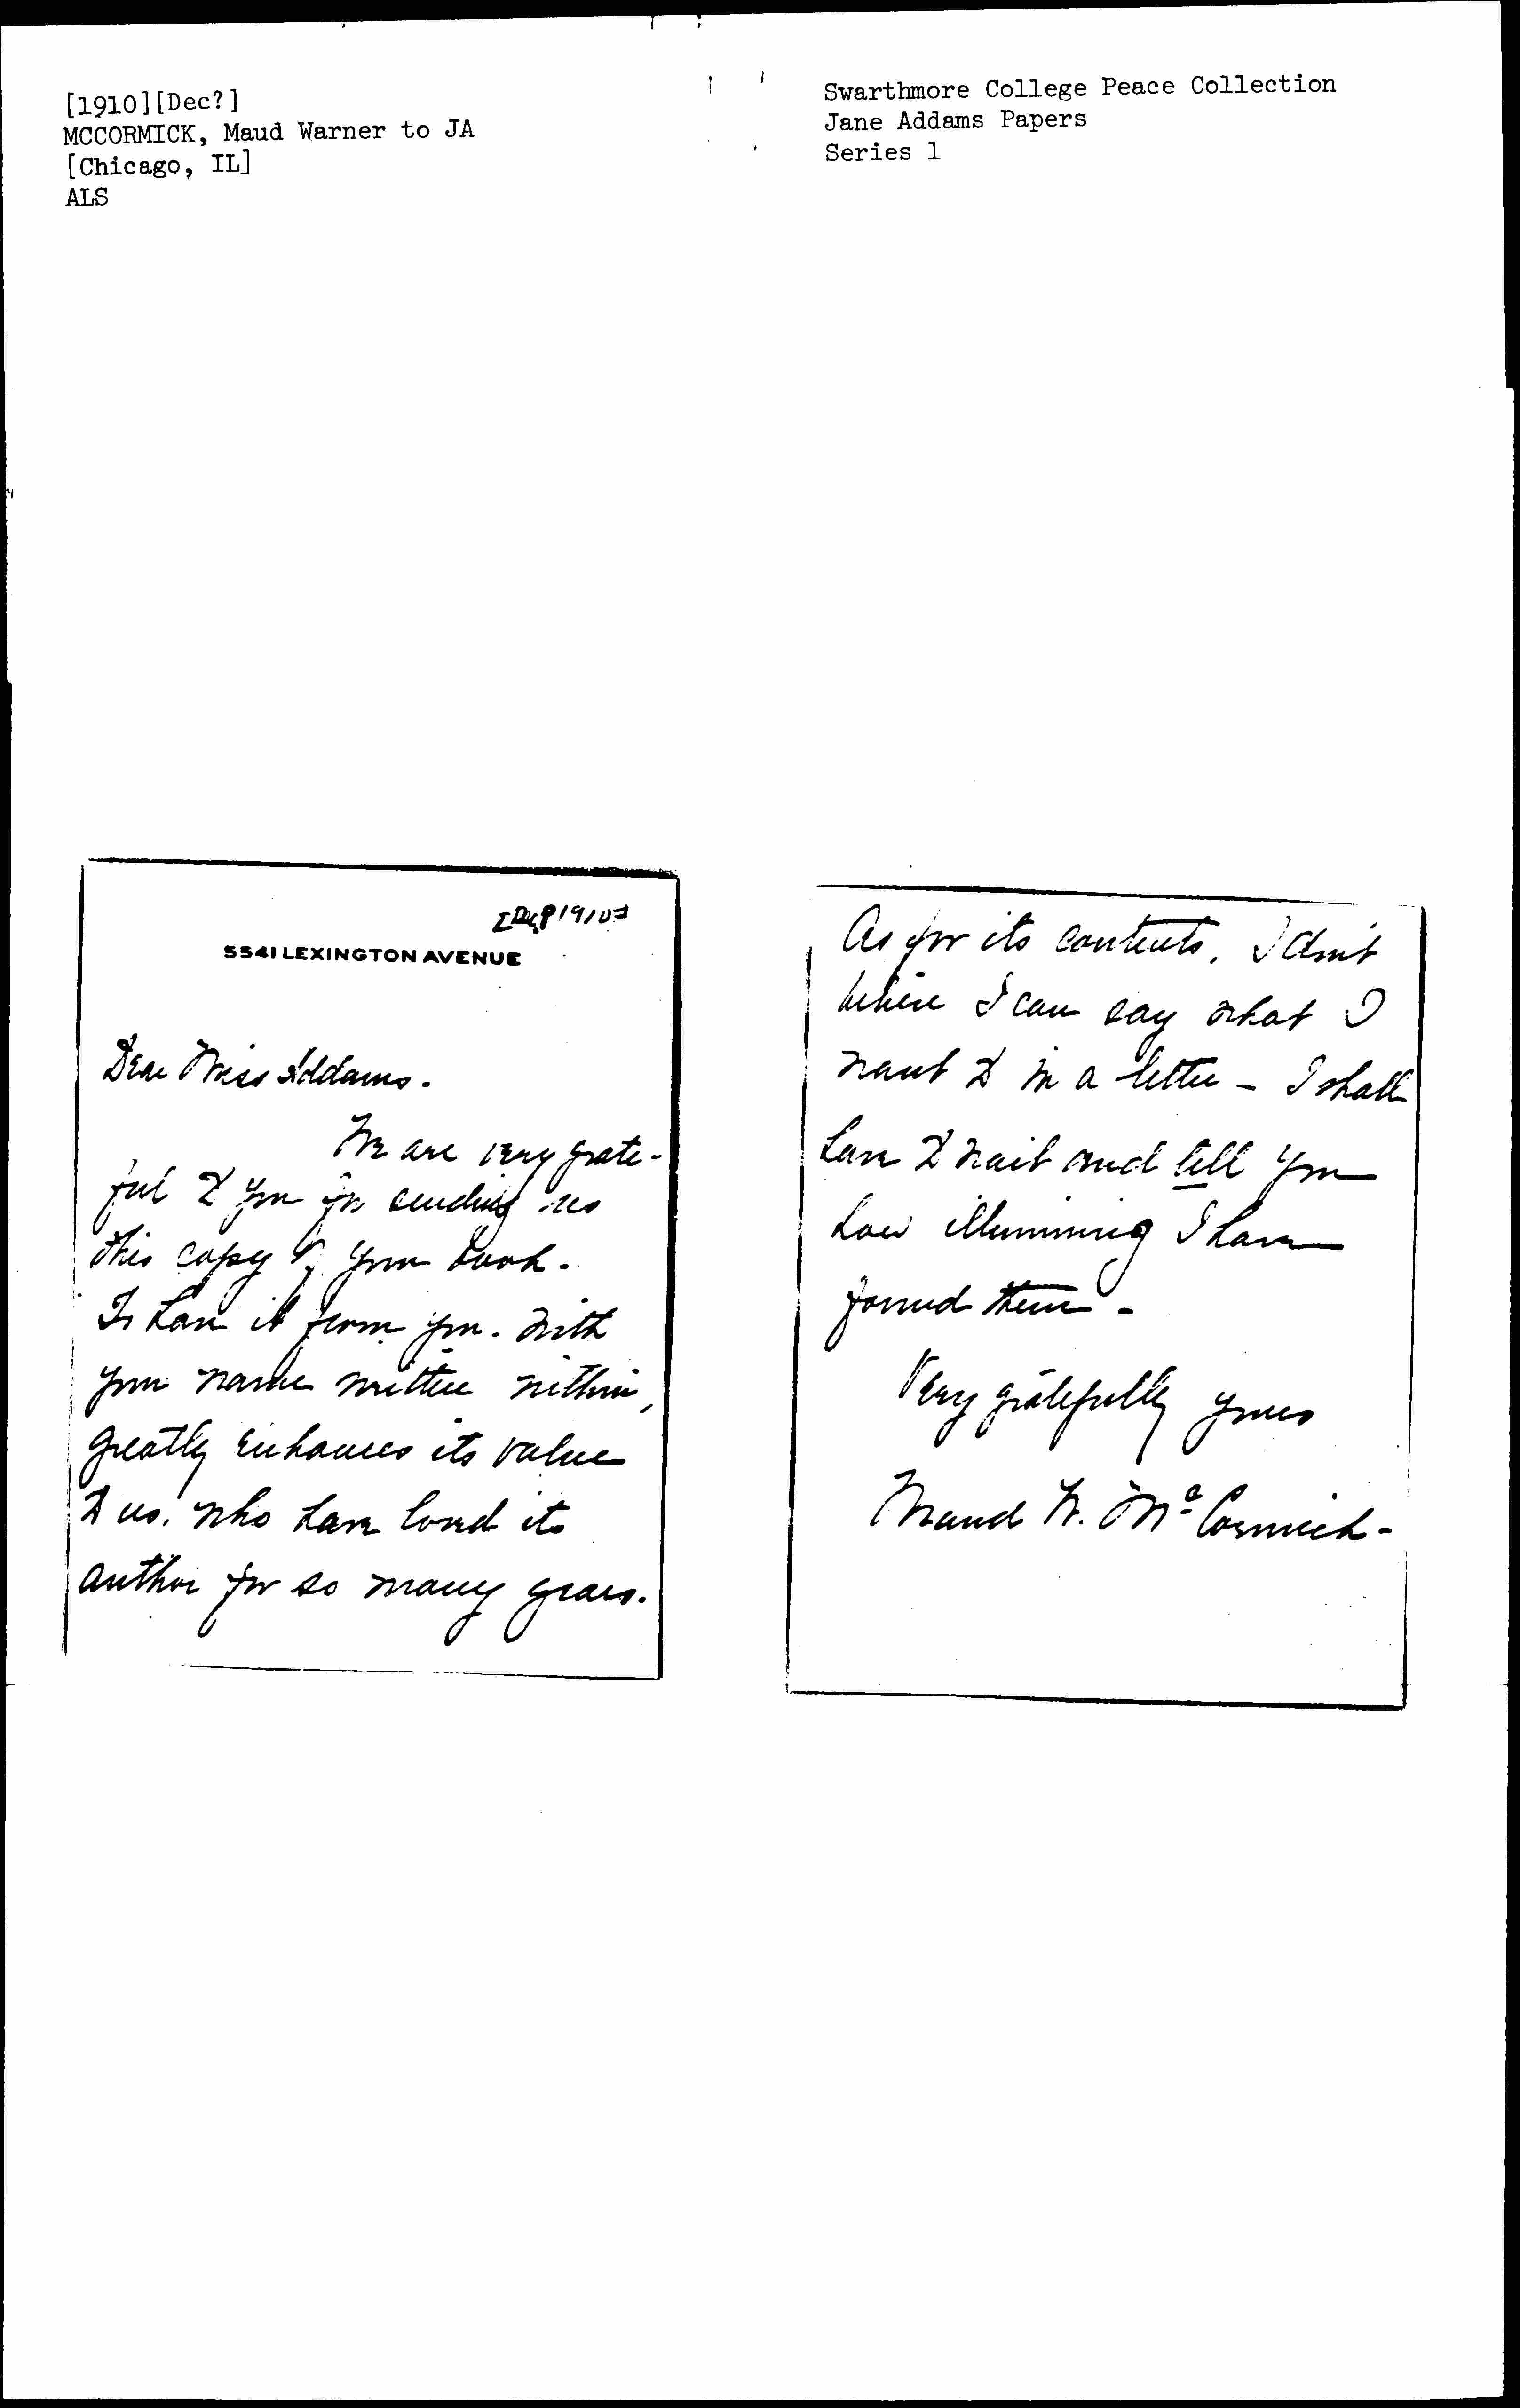 [1910][Dec?]
MCCORMICK, Maud Warner to JA
[Chicago, IL]
ALS
Swarthmore College Peace Collection
Jane Addams Papers
Series 1
[Dec? 1910]
5541 LEXINGTON AVENUE
Dear Miss Addams.
We are very grate-
ful to you for sending us
this copy of your book.
To have it from you. with
your name written within,
greatly enhances its value
to us. who have loved its
author for so many years.
As for its contents, I don't
believe I can say what I
want to in a letter - I shall
have to wait and tell you
how illumining I have
found them -
Very gratefully yours
Maud W. McCormick -